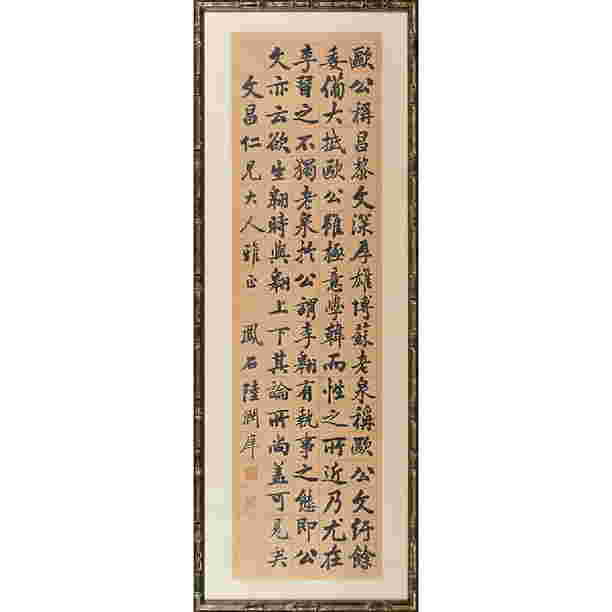 歐公稱昌黎文深厚雄博蘇老泉稱歐公文紆餘
委備大抵歐公雖極意學韓而性之所近乃尤在
李習之不獨老泉於公謂李翱有執事之態即公
文亦云欲生翱時與翱上下其論所尚蓋可見矣
文昌仁兄大人雅正 鳳石陸潤庠